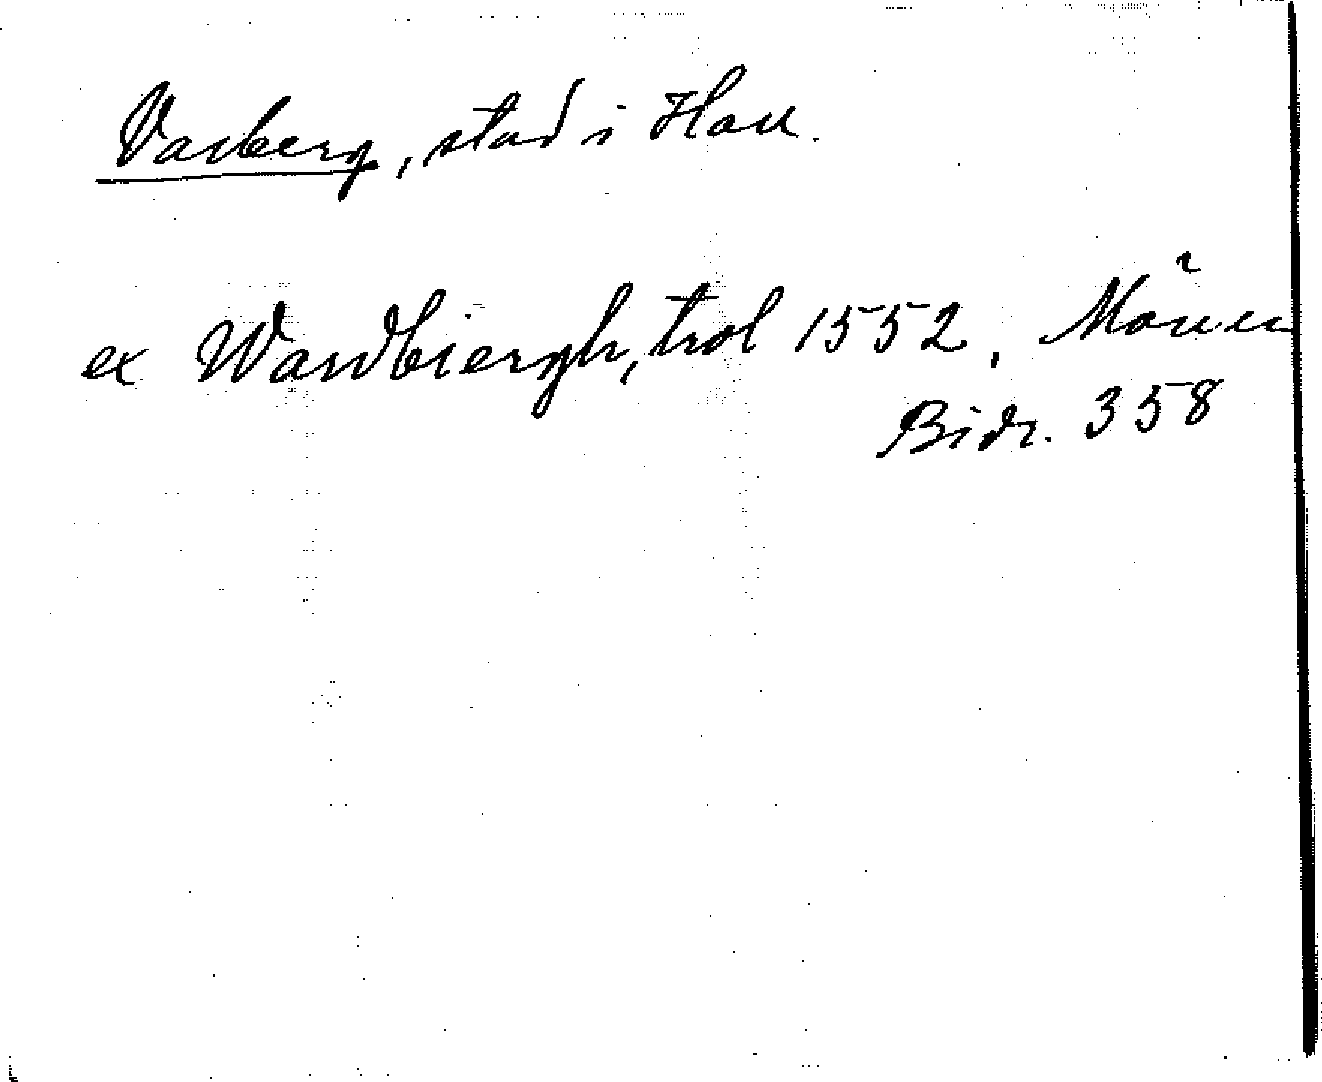 Varberg, stad i Hall.
ex Wardbiergh, trol 1552,
Bidr. 358